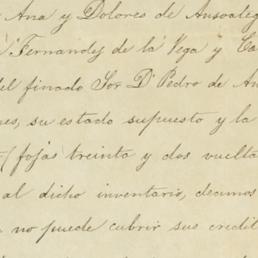 Ana y Dolores de Ansoateg
Fernandez de la Vega y Ca
del finado Sor. Dn. Pedro de An
es, su estado supuesto y la
(fojas treinta y dos vuelta
al dicho inventario, decimos
no puede cubrir sus credit